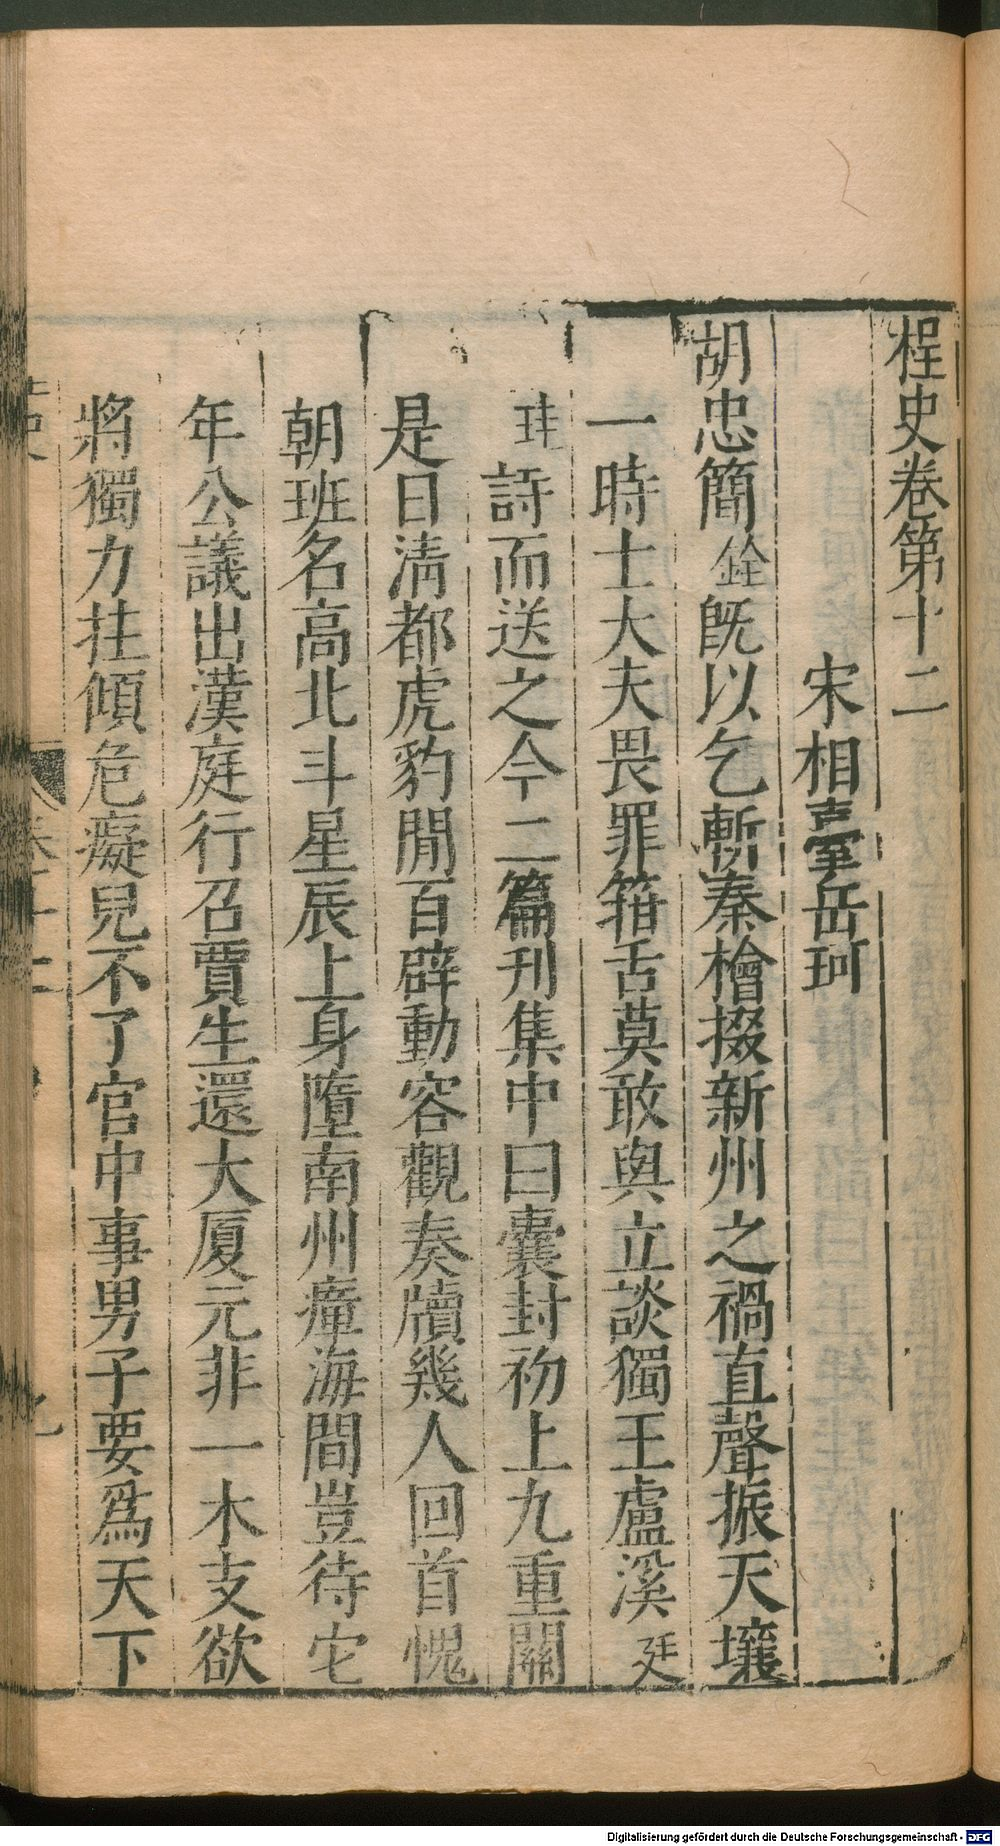 桯史卷第十二
宋相臺岳珂
胡忠簡銓旣以乞斬秦檜掇新州之禍直聲振天壤
一時士大夫畏罪箝舌莫敢與立談獨王盧溪廷
珪詩而送之今二篇刋集中曰囊封初上九重關
是日淸都虎豹閒百辟動容觀奏牘幾人回首愧
朝班名高北斗星辰上身墮南州瘴海間豈待它
年公議出漢庭行召賈生還大厦元非一木支欲
將獨力拄傾危癡兒不了官中事男子要爲天下
卷十二
Digitalisierung gefördert durch die Deutsche Forschungsgemeinschaft - DFG